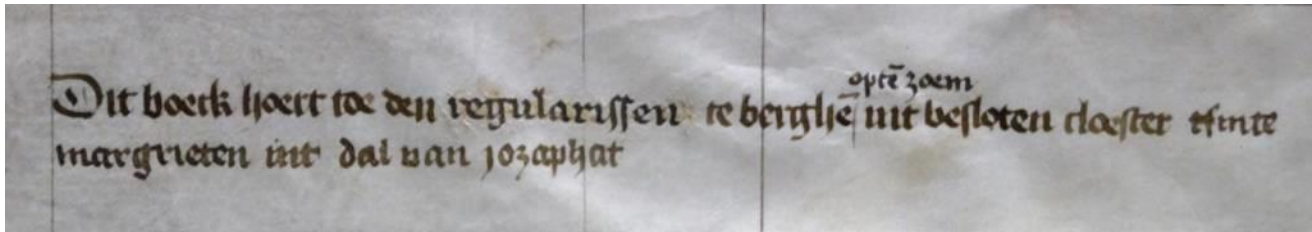 optē zoem
Dit boeck hoert toe den regularissen te berghē int besloten cloester tsinte
margrieten int dal van jozaphat